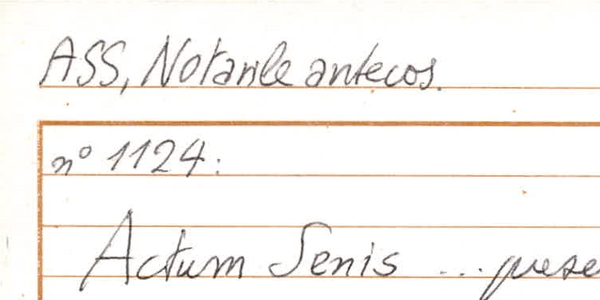 ASS, Notarile antecos.
nº 1124:
Actum Senis ... prese